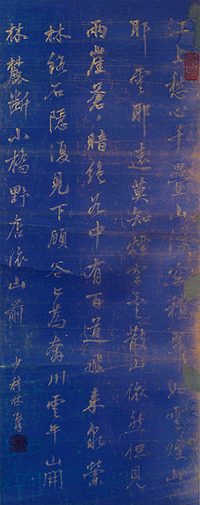 江上愁心千疊山浮空積翠如雲煙山
耶雲耶遠莫知煙空雲散山依然但見
兩崖蒼〻暗絕谷中有百道飛來泉縈
林絡石隱復見下赴谷口為奔川雲平山開
林麓斷小橋野店依山前
少穆林